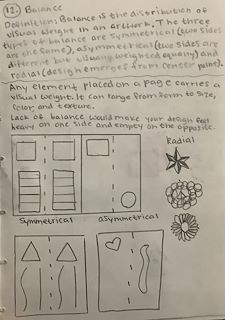 12. Balance
Definition: Balance is the distribution of
visual weight in an artwork. The three
types of balance are symmetrical (two sides
are the same), asymmetrical (two sides are
different but visually weighted equally) and
radial (design emerges from center point).
Any element placed on a page carries a
visual weight. It can range from form to size,
color, and texture.
Lack of balance would make your design feel
heavy on one side and empty on the opposite.
Radial
Symmetrical
asymmetrical